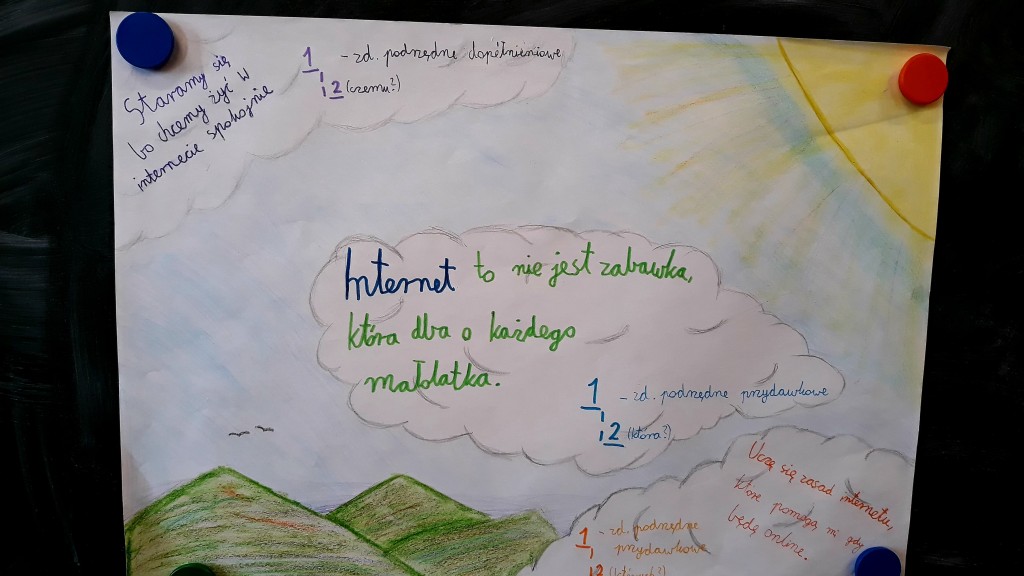 Staramy się
bo chcemy żyć w
internecie spokojnie
1 - zd. podrzędne dopełnieniowe
2 (czemu?)
Internet to nie jest zabawka,
która dba o każdego
małolatka.
1 - zd. podrzędne przydawkowe
2 (która?)
Uczę się zasad internetu,
które pomogą mi gdy
będę online.
1 - zd. podrzędne
przydawkowe
2 (których?)